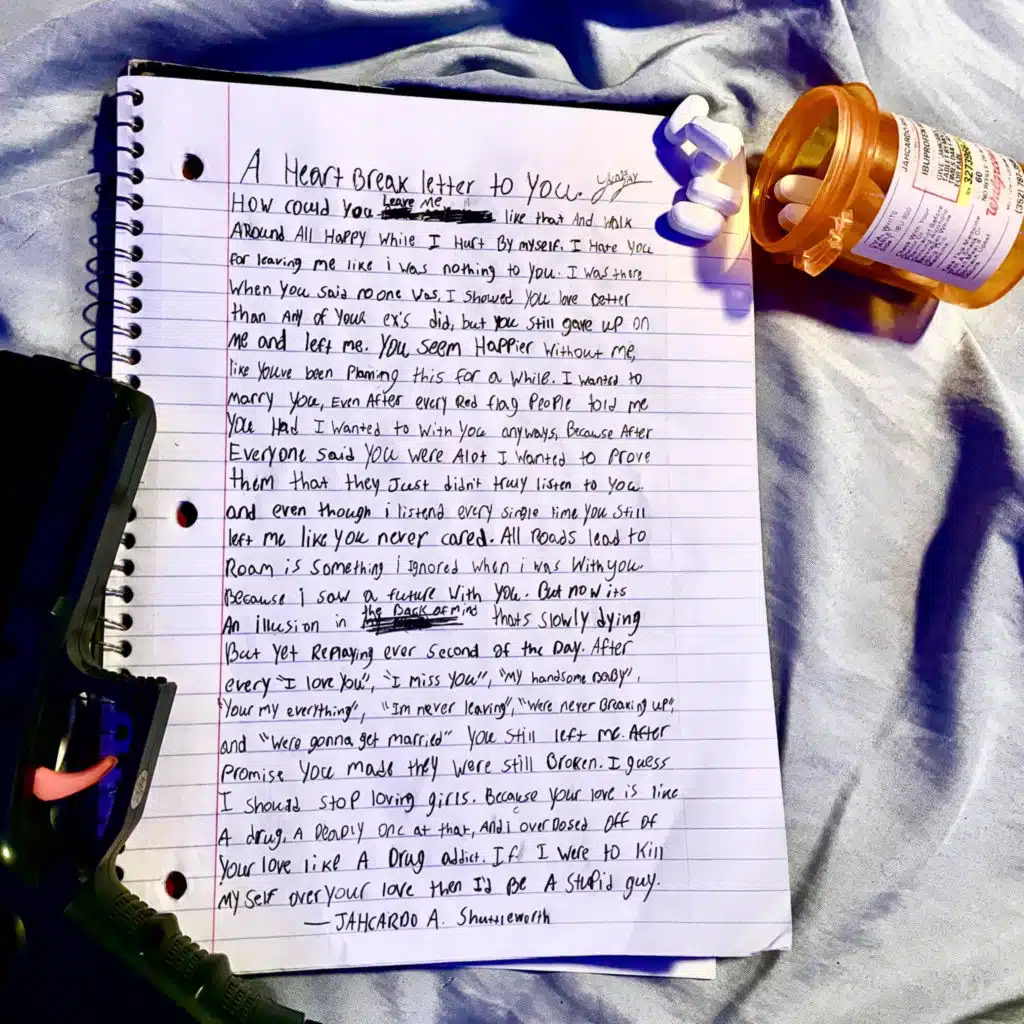 A Heart Break letter to You.
How could You Leave Me like that And Walk
Around All Happy While I Hurt By myself. I Hate You
for leaving me like i was nothing to you. I was there
When You said no one was, I showed You love better
than Any of Your ex's did, but You Still gave up on
Me and left me. You Seem Happier Without me,
like Youve been Planning this for a While. I wanted to
Marry You, Even After every Red flag People told me
You Had I Wanted to With You anyways, Because After
Everyone said You were Alot I Wanted to Prove
them that they Just didn't truly listen to You.
and even though i listend every single time You Still
left me like You never cared. All roads lead to
Roam is something i ignored when i was With You.
Because i saw a future With You. But now its
An illusion in the Back of Mind thats slowly dying
But yet Replaying ever second of the Day. After
every "I love You", "I miss You", "My handsome Baby",
"Your my everything", "Im never leaving", "Were never Breaking up",
and "Were gonna get married" You Still left me. After
Promise You made they were still Broken. I guess
I should stop loving girls. Because Your love is like
A drug, A Deadly one at that, And i overdosed off of
Your love like A Drug addict. If I were to Kill
Myself over Your love then I'd Be A Stupid guy.
— JAHCARDO A. Shuttleworth
JAHCARDO
IBUPROFEN
60
Walgreens